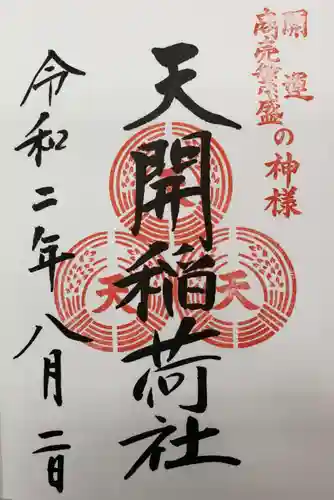 開運
商売繁盛の神様
天開稲荷社
令和二年八月二日
天
天